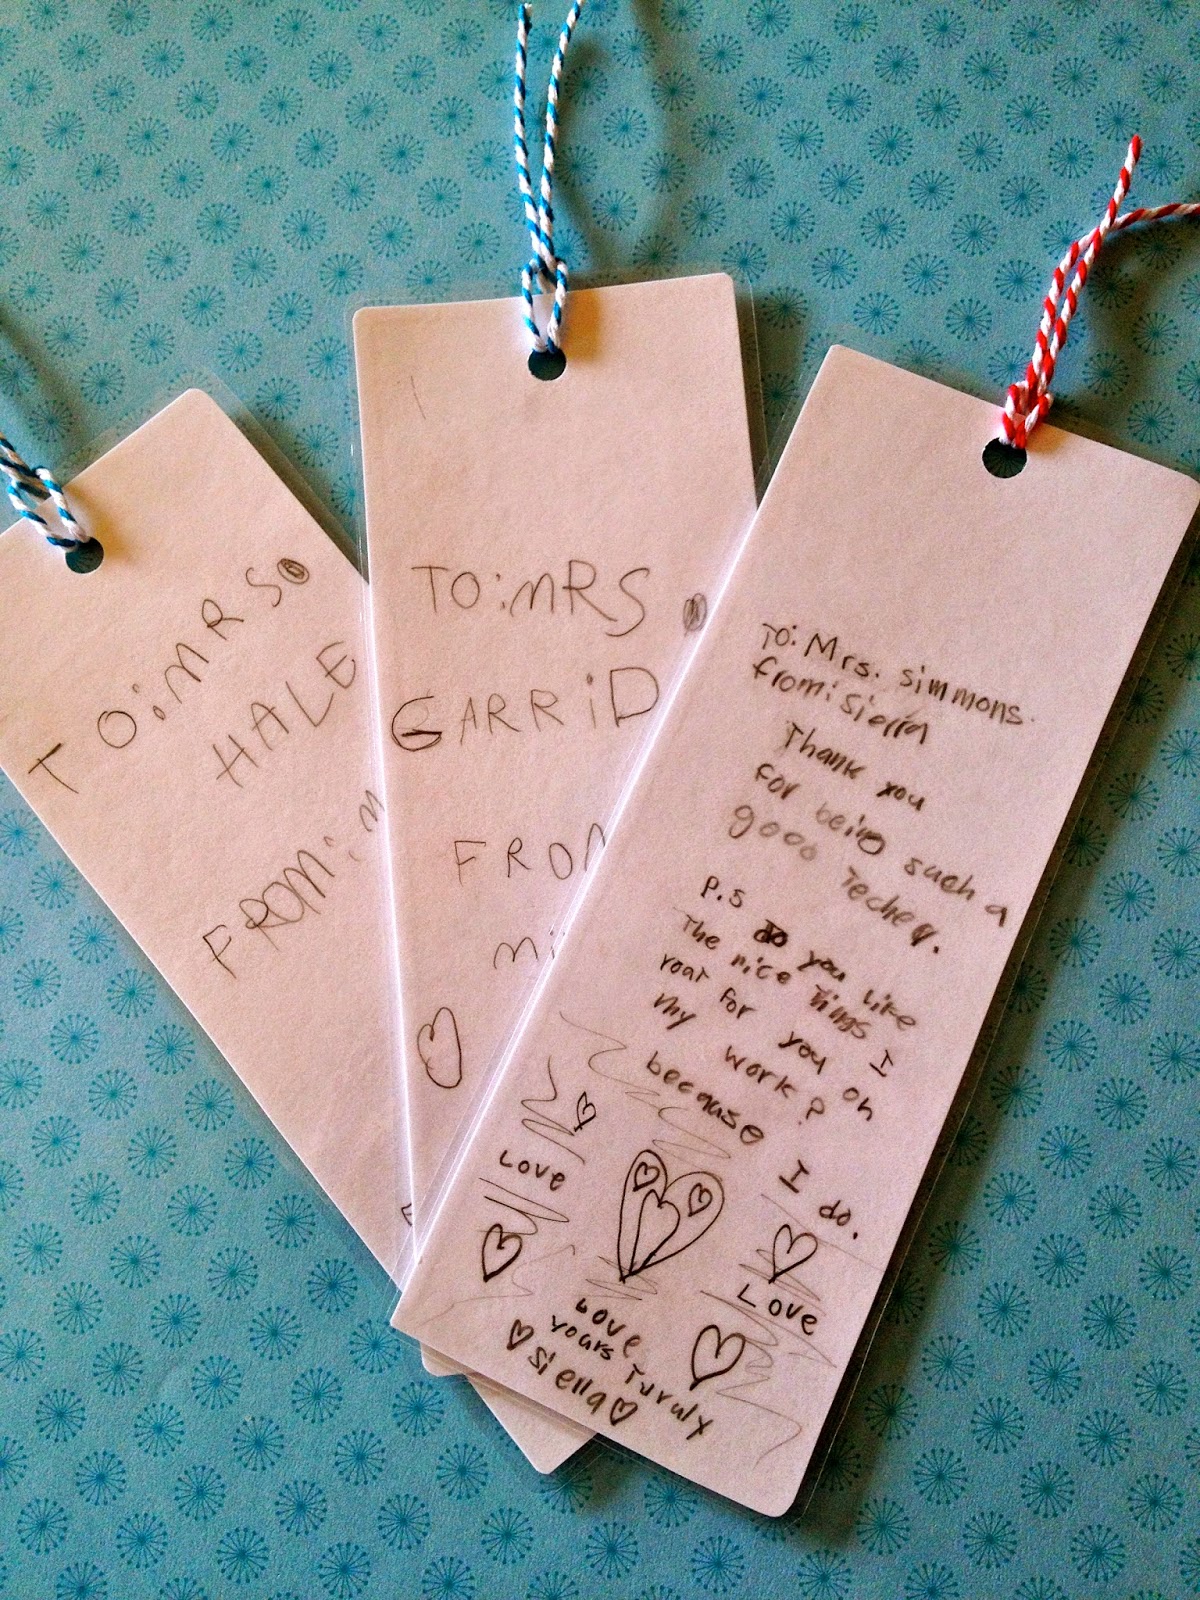 TO: MRS.
HALE
FROM:
TO: MRS.
GARRID
FROM
TO: Mrs. Simmons.
from: Sierra
Thank you
for being such a
good techer.
P.S do you like
The nice Tings I
roat for you on
my work?
because
I do.
Love
Love
Love
yours Turuly
Sierra